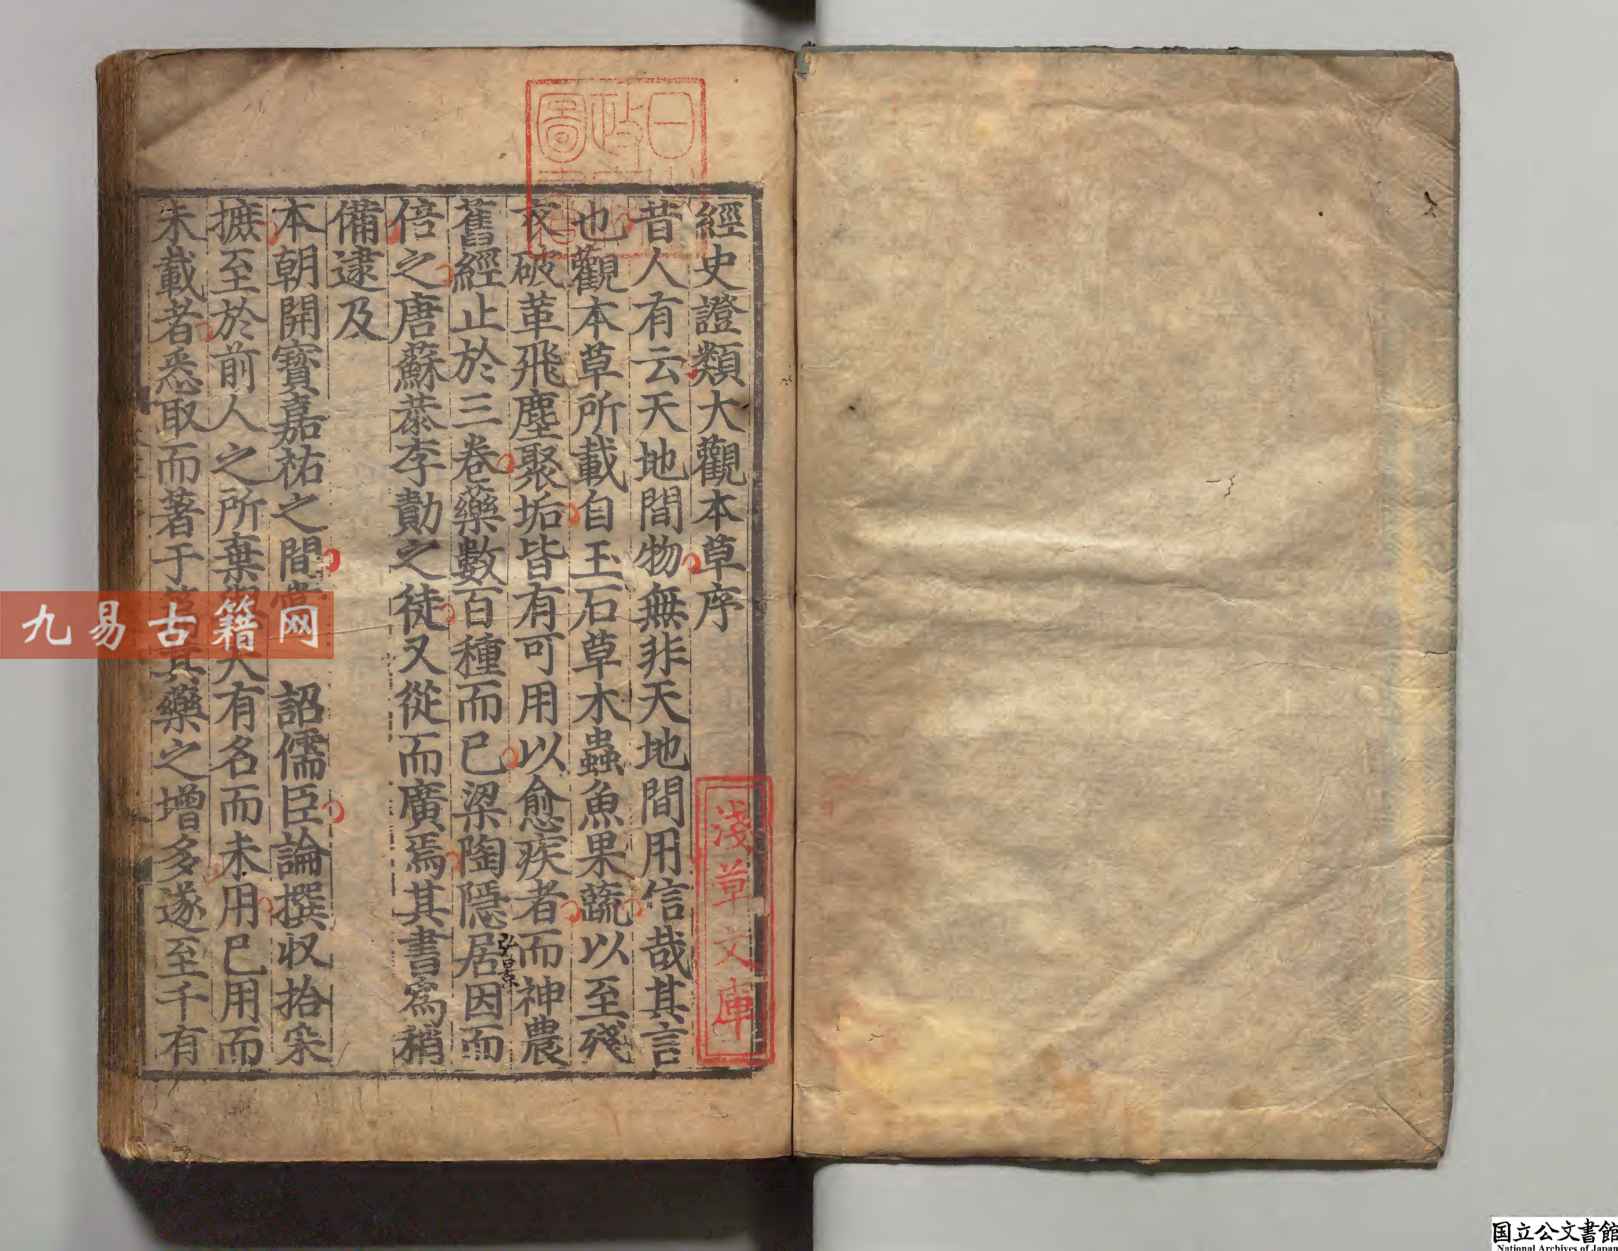 經史證類大觀本草序
昔人有云天地間物無非天地間用信哉其言
也觀本草所載自玉石草木蟲魚果蔬以至殘
衣破革飛塵聚垢皆有可用以愈疾者而神農
舊經止於三卷藥數百種而已梁陶隱居因而
弘景
倍之唐蘇恭李勣之徒又從而廣焉其書爲稍
備逮及
本朝開寶嘉祐之間 詔儒臣論撰収拾采
摭至於前人之所棄 人有名而未用已用而
未載者悉取而著于 其藥之增多遂至千有
日 政 圖
淺草文庫
九易古籍网
国立公文書館
National Archives of Japan